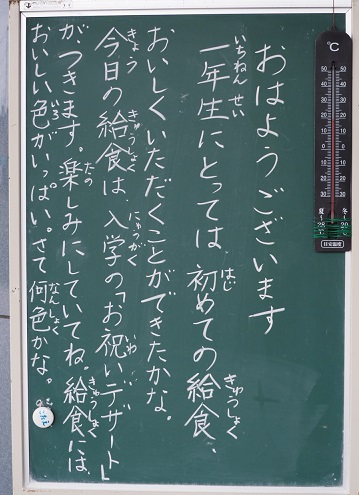 おはようございます
一年生にとっては初めての給食、
おいしくいただくことができたかな。
今日の給食は、入学の「お祝いデザート」
がつきます。楽しみにしていてね。給食には、
おいしい色がいっぱい。さて何色かな。
いちねんせい
はじ
きゅうしょく
きょう
きゅうしょく
にゅうがく
いわ
たの
きゅうしょく
いろ
なんしょく
℃
50
40
30
20
10
0
10
20
30
夏
冬
目安温度